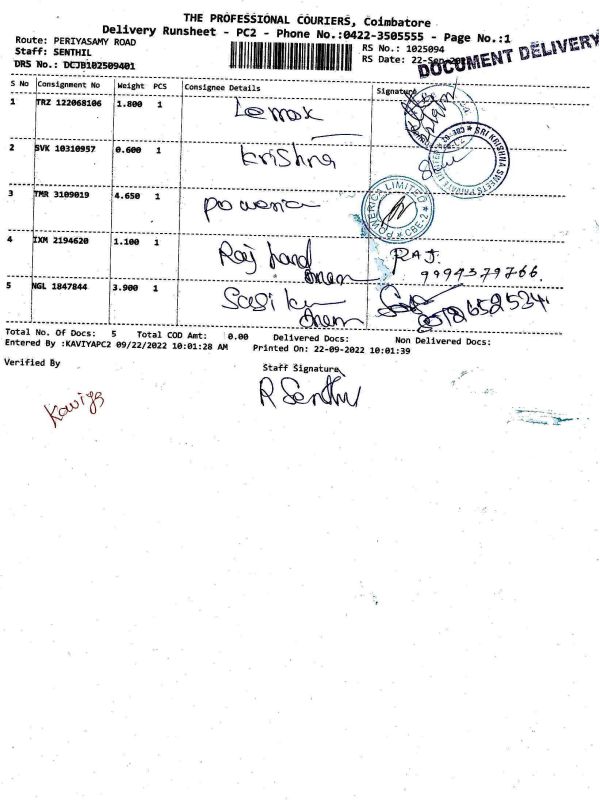 THE PROFESSIONAL COURIERS, Coimbatore
Delivery Runsheet - PC2 - Phone No.:0422-3505555 - Page No.:1
Route: PERIYASAMY ROAD
RS No.: 1025094
Staff: SENTHIL
RS Date: 22-Sep-
DOCUMENT DELIVERY
DRS No.: DCJB102509401
S No Consignment No Weight PCS Consignee Details Signature
1 TRZ 122068106 1.800 1
2 SVK 10310957 0.600 1 Krishna
SRI KRISHNA SWEETS PRIVATE LIMITED
3 TMR 3109019 4.650 1 Powerica
POWERICA LIMITED * CBE-2 *
4 IXM 2194620 1.100 1 Raj
RAJ.
5 NGL 1847844 3.900 1
Total No. Of Docs: 5 Total COD Amt: 0.00 Delivered Docs: Non Delivered Docs:
Entered By :KAVIYAPC2 09/22/2022 10:01:28 AM Printed On: 22-09-2022 10:01:39
Verified By Staff Signature
Kaviya R Senthil